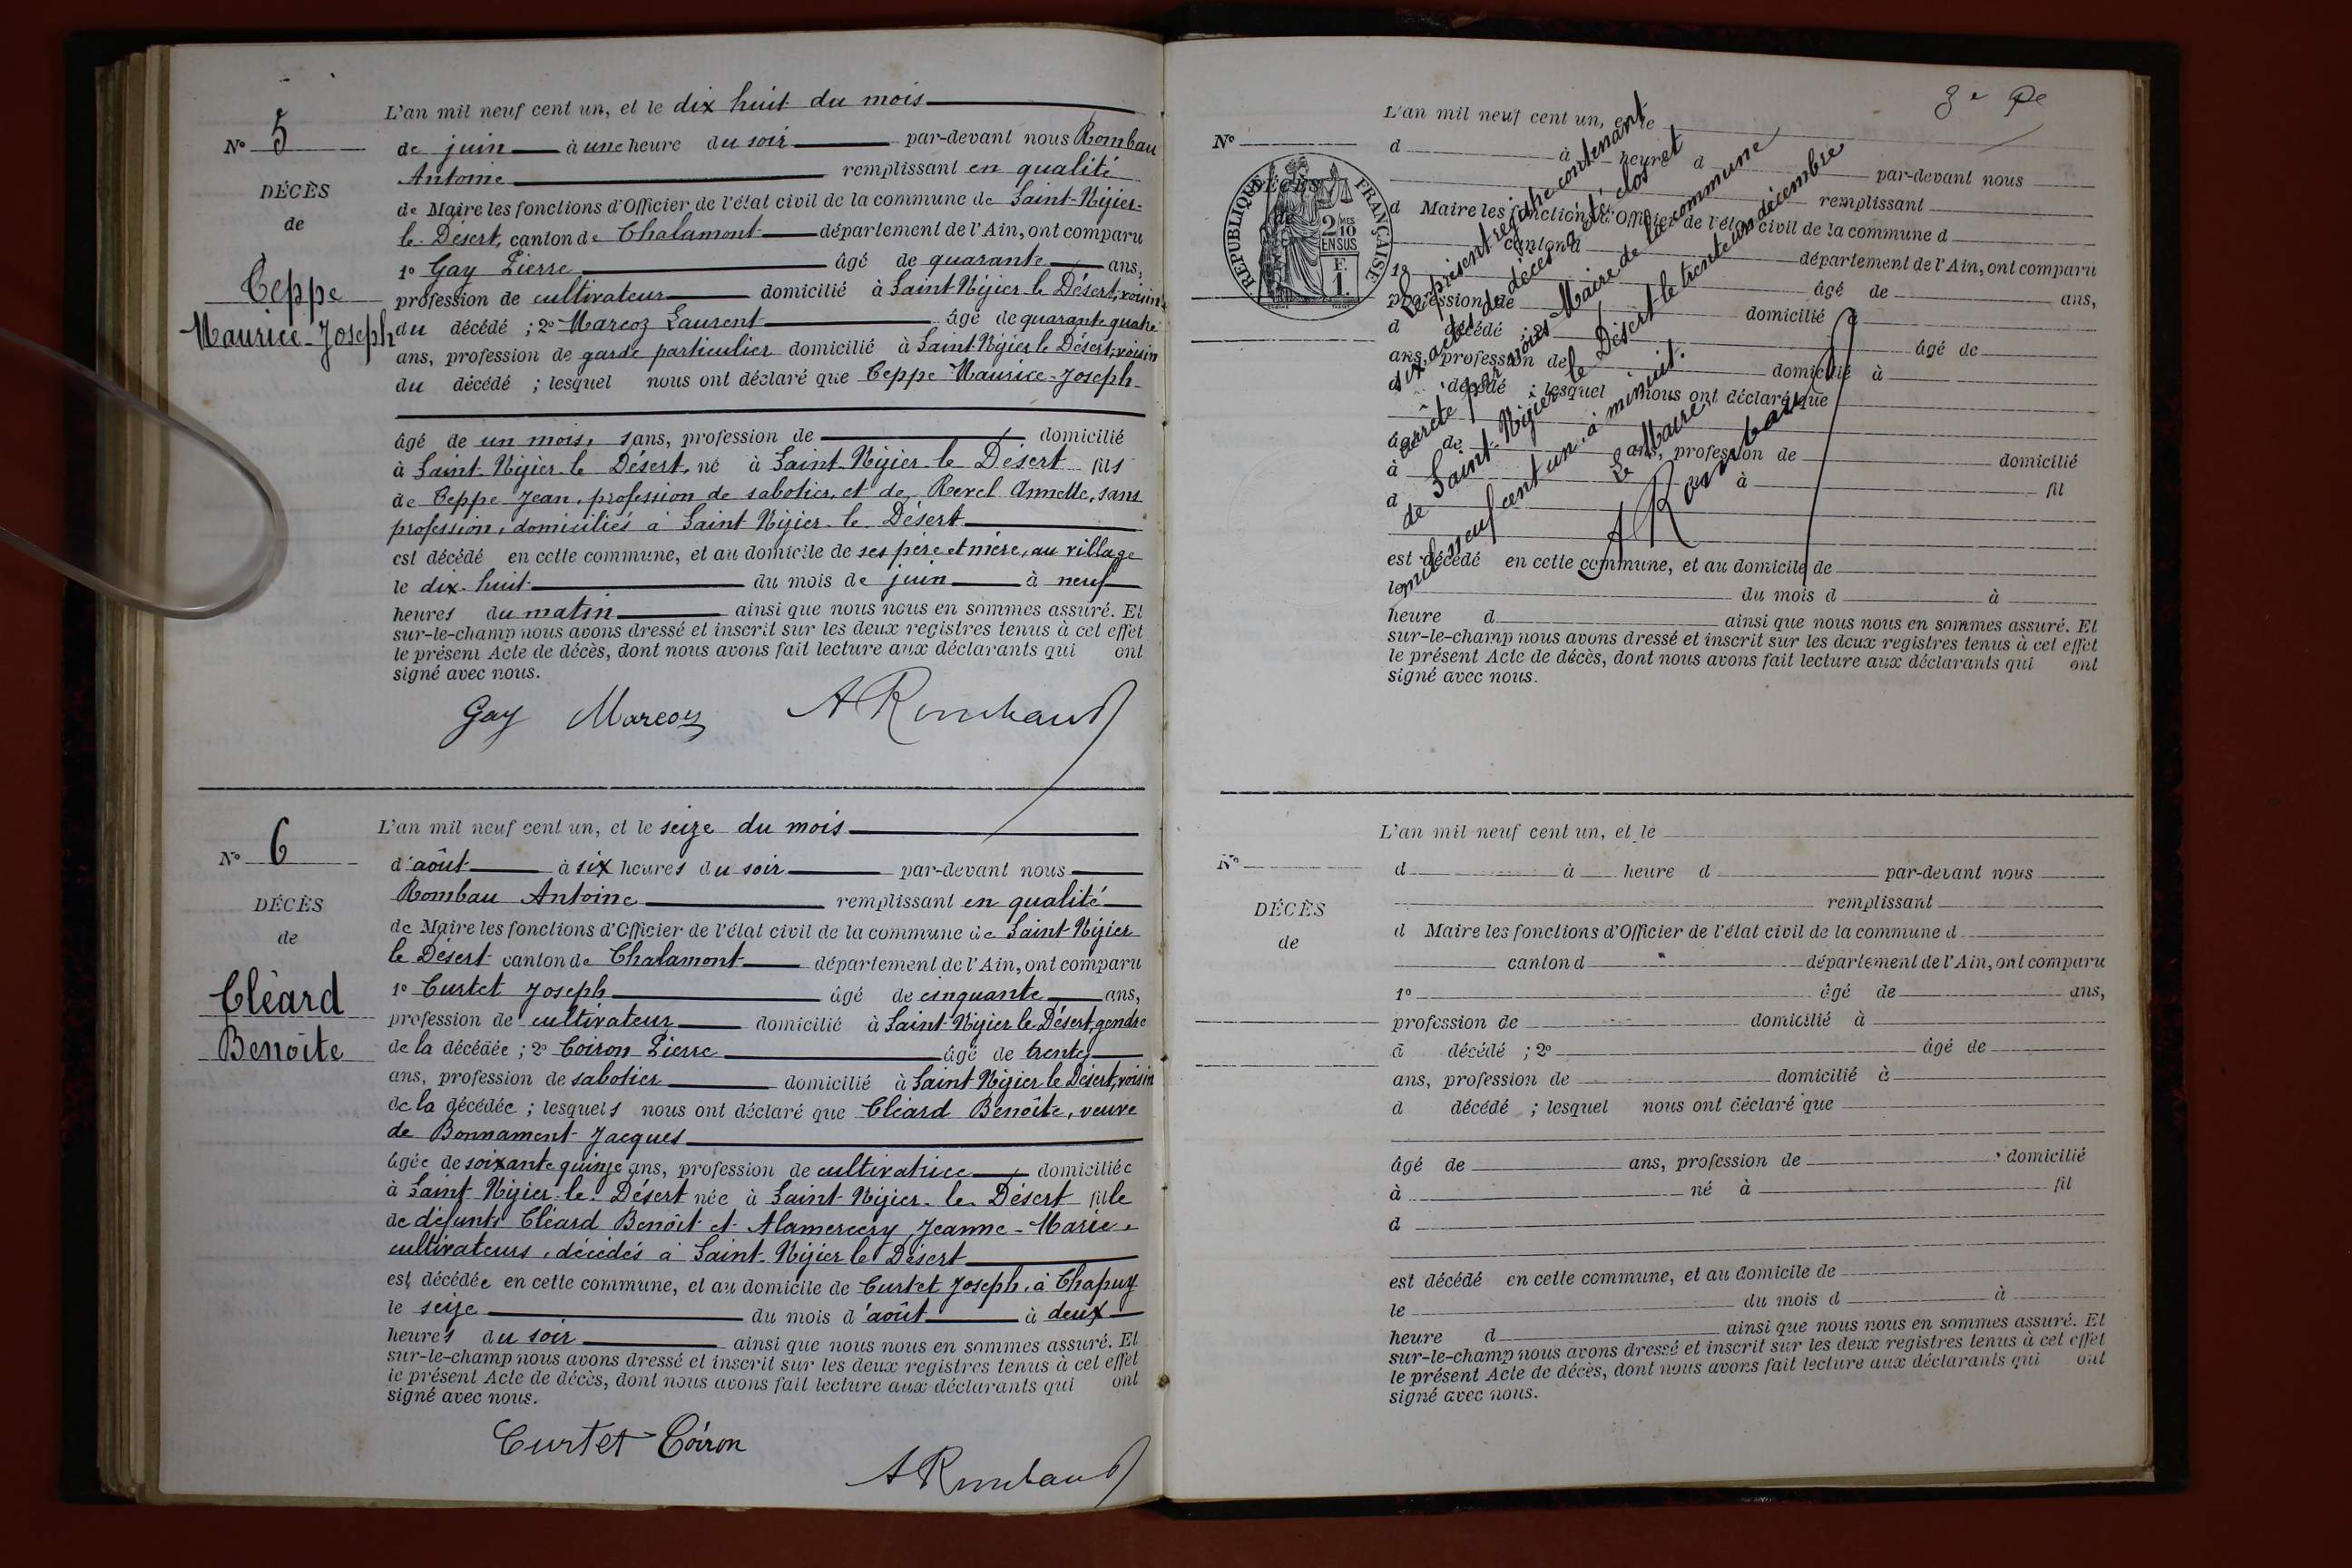 N° 5
DÉCÈS
de
Ceppe
Maurice-Joseph
L'an mil neuf cent un, et le dix huit du mois
de juin à une heure du soir par-devant nous Rombau
Antoine remplissant en qualité
de Maire les fonctions d'Officier de l'état civil de la commune de Saint-Nizier-
le-Désert, canton de Chalamont département de l'Ain, ont comparu
1° Gay Pierre âgé de quarante ans,
profession de cultivateur domicilié à Saint Nizier le Désert, voisin
du décédé ; 2° Marcoz Laurent âgé de quarante quatre
ans, profession de garde particulier domicilié à Saint Nizier le Désert, voisin
du décédé ; lesquel nous ont déclaré que Ceppe Maurice-Joseph-
âgé de un mois, sans, profession de domicilié
à Saint-Nizier-le Désert, né à Saint-Nizier le Désert fils
de Ceppe Jean, profession de sabotier, et de Revel Annette, sans
profession, domiciliés à Saint Nizier-le Désert
est décédé en cette commune, et au domicile de ses père et mère, au village
le dix-huit du mois de juin à neuf
heures du matin ainsi que nous nous en sommes assuré. Et
sur-le-champ nous avons dressé et inscrit sur les deux registres tenus à cet effet
le présent Acte de décès, dont nous avons fait lecture aux déclarants qui ont
signé avec nous.
Gay Marcoz ARombaud
N° 6
DÉCÈS
de
Cléard
Benoîte
L'an mil neuf cent un, et le seize du mois
d'août à six heures du soir par-devant nous
Rombau Antoine remplissant en qualité
de Maire les fonctions d'Officier de l'état civil de la commune de Saint-Nizier
le Désert canton de Chalamont département de l'Ain, ont comparu
1° Curtet Joseph âgé de cinquante ans,
profession de cultivateur domicilié à Saint-Nizier le Désert, gendre
de la décédée ; 2° Coiron Pierre âgé de trente
ans, profession de sabotier domicilié à Saint Nizier le Désert, voisin
de la décédée ; lesquels nous ont déclaré que Cléard Benoîte, veuve
de Bonnament Jacques
âgée de soixante quinze ans, profession de cultivatrice domiciliée
à Saint Nizier-le-Désert née à Saint-Nizier-le-Désert fille
de défunts Cléard Benoît et Alamercery, Jeanne-Marie,
cultivateurs, décédés à Saint-Nizier le Désert
est décédée en cette commune, et au domicile de Curtet Joseph, à Chapuy
le seize du mois d'août à deux
heures du soir ainsi que nous nous en sommes assuré. Et
sur-le-champ nous avons dressé et inscrit sur les deux registres tenus à cet effet
le présent Acte de décès, dont nous avons fait lecture aux déclarants qui ont
signé avec nous.
Curtet Coiron
ARombaud
N°
DÉCÈS
de
RÉPUBLIQUE FRANÇAISE
2/10 EN SUS
F. 1.
L'an mil neuf cent un, et le
d à heure d par-devant nous
remplissant
d Maire les fonctions d'Officier de l'état civil de la commune d
canton d département de l'Ain, ont comparu
1° âgé de ans,
profession de domicilié à
d décédé ; 2° âgé de
ans, profession de domicilié à
d décédé ; lesquel nous ont déclaré que
âgé de ans, profession de domicilié
à né à fil
d
est décédé en cette commune, et au domicile de
le du mois d à
heure d ainsi que nous nous en sommes assuré. Et
sur-le-champ nous avons dressé et inscrit sur les deux registres tenus à cet effet
le présent Acte de décès, dont nous avons fait lecture aux déclarants qui ont
signé avec nous.
Le présent registre contenant
six actes de décès a été clos et
arrêté par nous Maire de la commune
de Saint-Nizier le Désert le trente un décembre
mil neuf cent un, à minuit.
Le Maire,
A Rombau
N°
DÉCÈS
de
L'an mil neuf cent un, et le
d à heure d par-devant nous
remplissant
d Maire les fonctions d'Officier de l'état civil de la commune d
canton d département de l'Ain, ont comparu
1° âgé de ans,
profession de domicilié à
d décédé ; 2° âgé de
ans, profession de domicilié à
d décédé ; lesquel nous ont déclaré que
âgé de ans, profession de domicilié
à né à fil
d
est décédé en cette commune, et au domicile de
le du mois d à
heure d ainsi que nous nous en sommes assuré. Et
sur-le-champ nous avons dressé et inscrit sur les deux registres tenus à cet effet
le présent Acte de décès, dont nous avons fait lecture aux déclarants qui ont
signé avec nous.